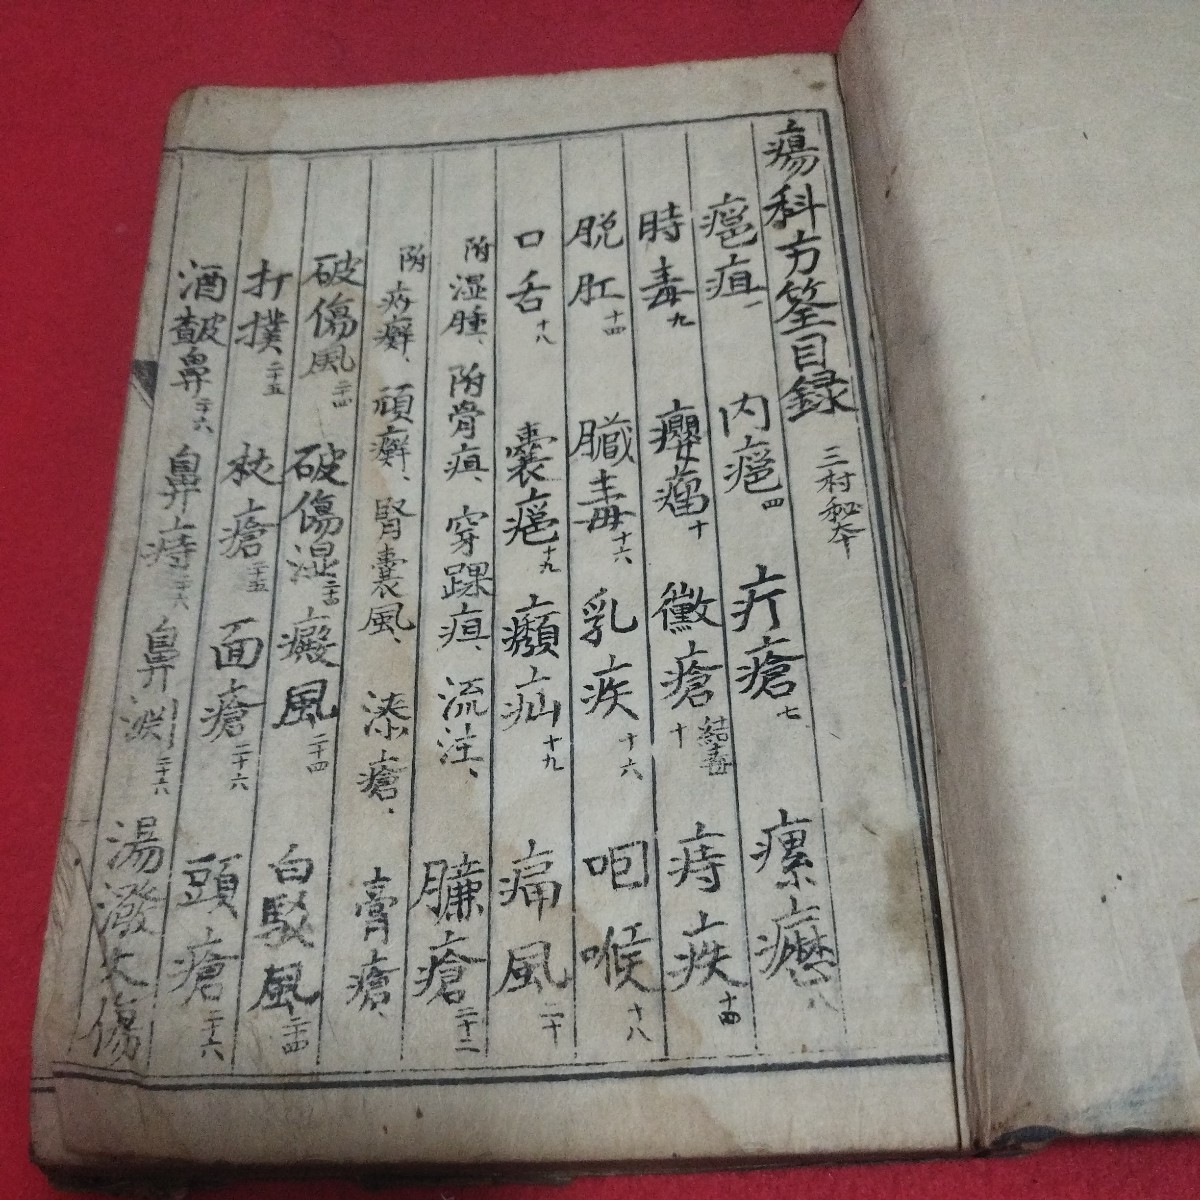 瘍科方筌目録 三村和
癰疽一 内癰四 疔瘡七 瘰癧八
時毒九 癭瘤十 黴瘡十 結毒 痔疾十四
脱肛十四 臓毒十六 乳疾十六 咽喉十八
口舌十八 囊癰十九 癩疝十九 痛風二十
附湿腫、附骨疽、穿踝疽、流注、臁瘡二十二
附疥癬、頑癬、腎囊風、漆瘡、膏瘡、
破傷風二十四 破傷湿二十四 癜風二十四 白駁風二十四
打撲、二十五 杖瘡二十五 面瘡二十六 頭瘡二十六
酒皶鼻二十六 鼻痔二十六 鼻淵二十六 湯潑火傷